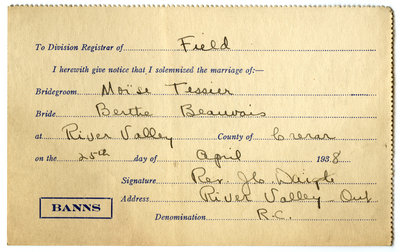 To Division Registrar of Field
I herewith give notice that I solemnized the marriage of:—
Bridegroom Moïse Tessier
Bride Berthe Beauvais
at River Valley County of Crerar
on the 25th day of April 1938
Signature Rev. Jos.
Address River Valley Ont
BANNS
Denomination R.C.